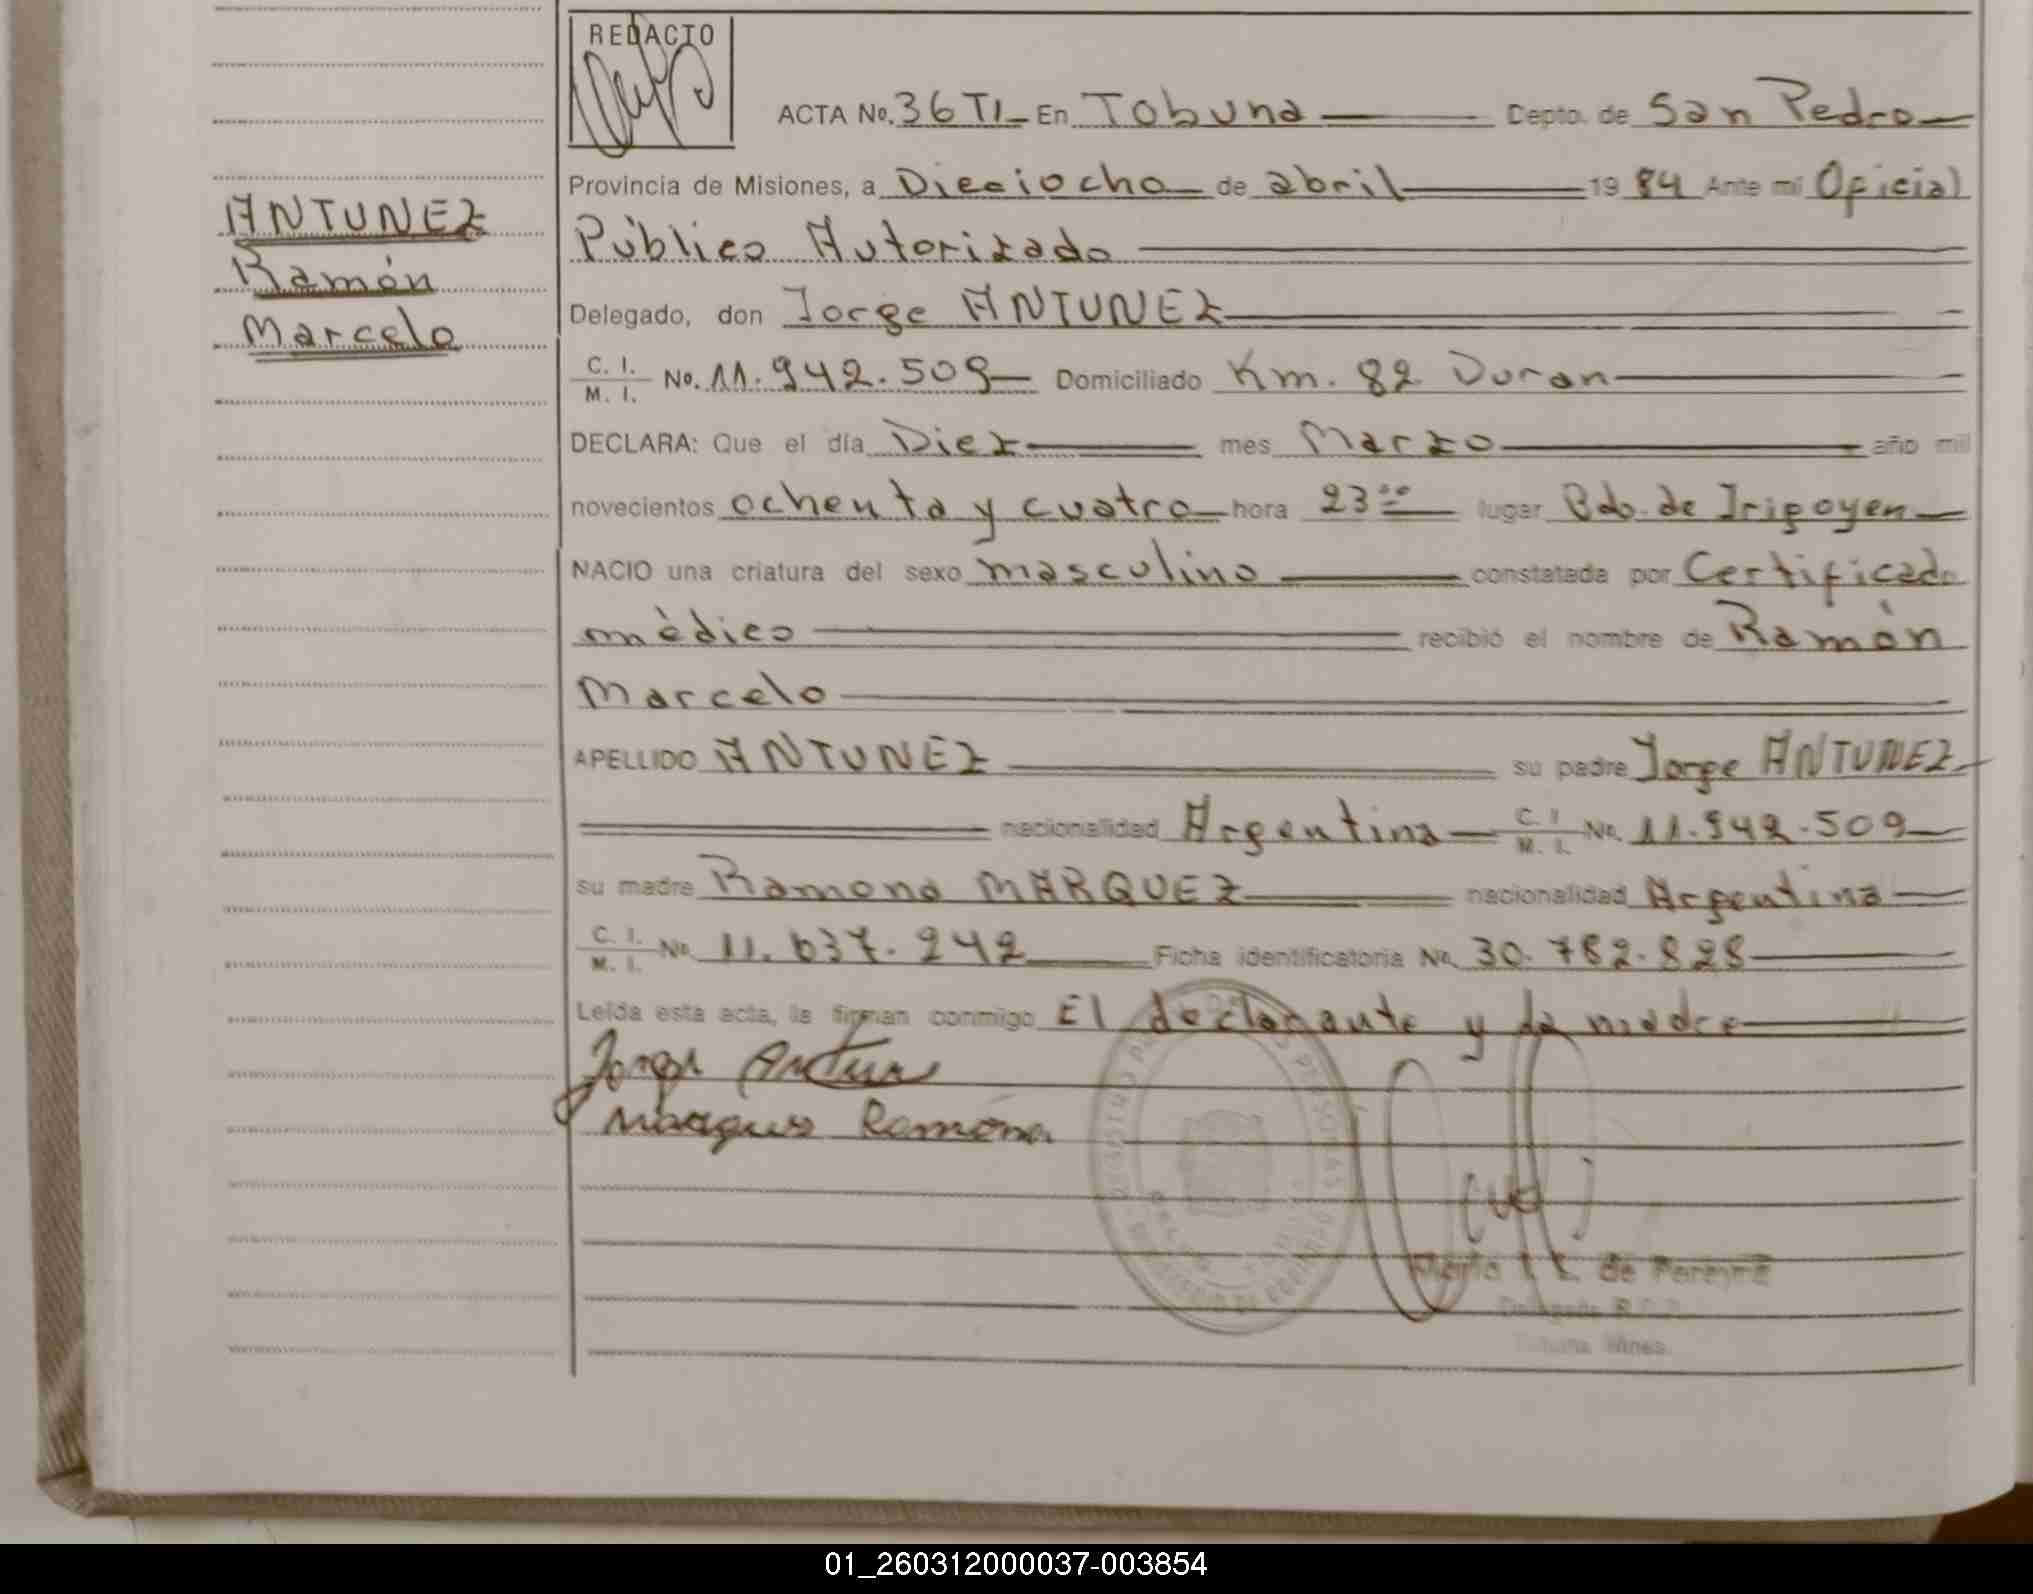 REDACTO
ACTA No. 36 TI En Tobuna Depto. de San Pedro
Provincia de Misiones, a Dieciocho de abril 19 84 Ante mi Oficial
Público Autorizado
ANTUNEZ
Ramón
Marcelo
Delegado, don Jorge ANTUNEZ
C. I.
M. I. No. 11.942.509 Domiciliado Km. 82 Duran
DECLARA: Que el día Diez mes Marzo año mil
novecientos ochenta y cuatro hora 23 00 lugar Bdo. de Irigoyen
NACIO una criatura del sexo masculino constatada por Certificado
mèdico recibió el nombre de Ramón
Marcelo
APELLIDO ANTUNEZ su padre Jorge ANTUNEZ
nacionalidad Argentina C. I.
M. I. No. 11.942.509
su madre Ramona MARQUEZ nacionalidad Argentina
C. I.
M. I. No. 11.637.242 Ficha identificatoria No. 30.782.828
Leída esta acta, la firman conmigo El declarante y la madre
Jorge
Ramona
de Pereyra
01_260312000037-003854